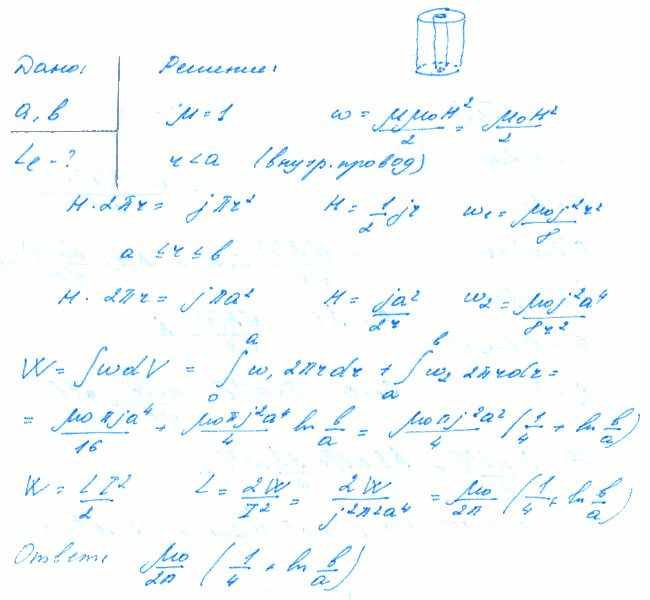 Дано: Решение:
a, b μ = 1 w = μμ₀H²/2 = μ₀H²/2
Lₑ - ? r < a (внутр. провод)
H · 2πr = jπr² H = 1/2 jr w₁ = μ₀j²r²/8
a ≤ r ≤ b
H · 2πr = jπa² H = ja²/2r w₂ = μ₀j²a⁴/8r²
W = ∫wdV = ∫₀ᵃ w₁ 2πrdr + ∫ₐᵇ w₂ 2πrdr =
= μ₀πja⁴/16 + μ₀πj²a⁴/4 ln b/a = μ₀πj²a²/4 (1/4 + ln b/a)
W = LI²/2 L = 2W/I² = 2W/j²π²a⁴ = μ₀/2π (1/4 + ln b/a)
Ответ: μ₀/2π (1/4 + ln b/a)